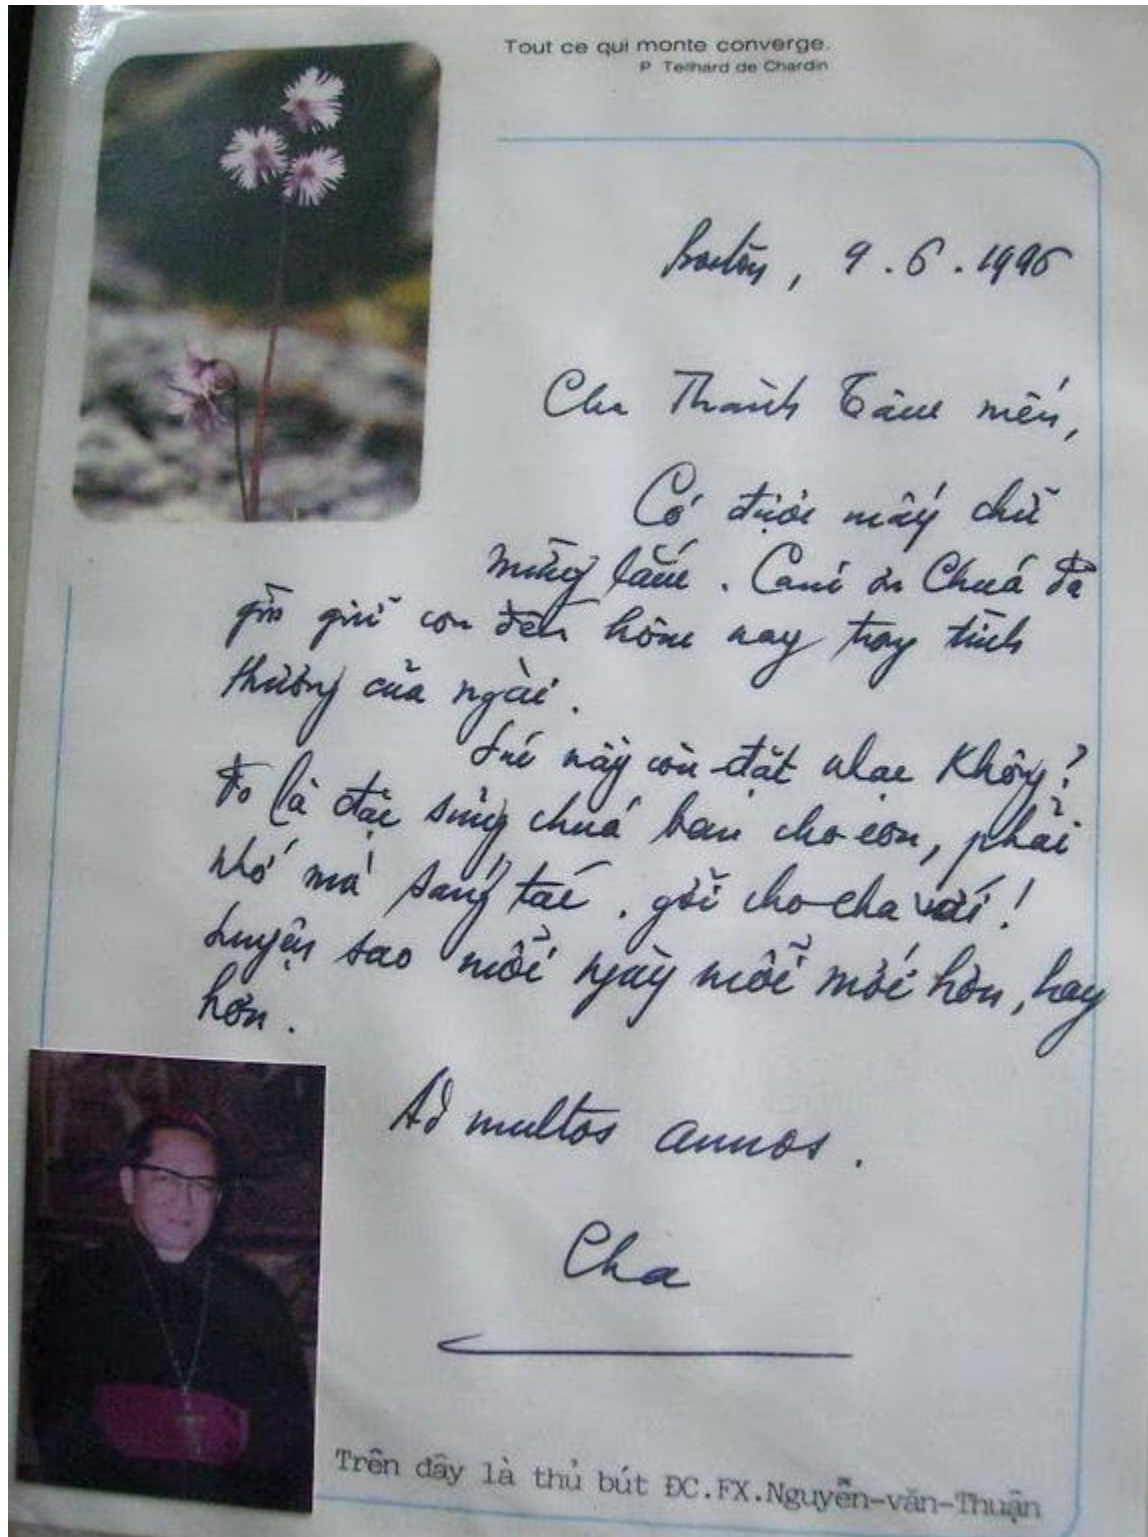 Tout ce qui monte converge.
P. Teilhard de Chardin
Boston, 9.6.1996
Cha Thành Tâm mến,
Có được mấy chữ
mừng lắm. Cám ơn Chúa đã
gìn giữ con đến hôm nay trong tình
thương của ngài.
Lúc này còn đặt nhạc không?
Đó là đặc sủng chúa ban cho con, phải
nhớ mà sáng tác. gởi cho cha với!
Luyện sao mỗi ngày mỗi mới hơn, hay
hơn.
Ad multos annos.
Cha
Trên đây là thủ bút ĐC.FX.Nguyễn-văn-Thuận